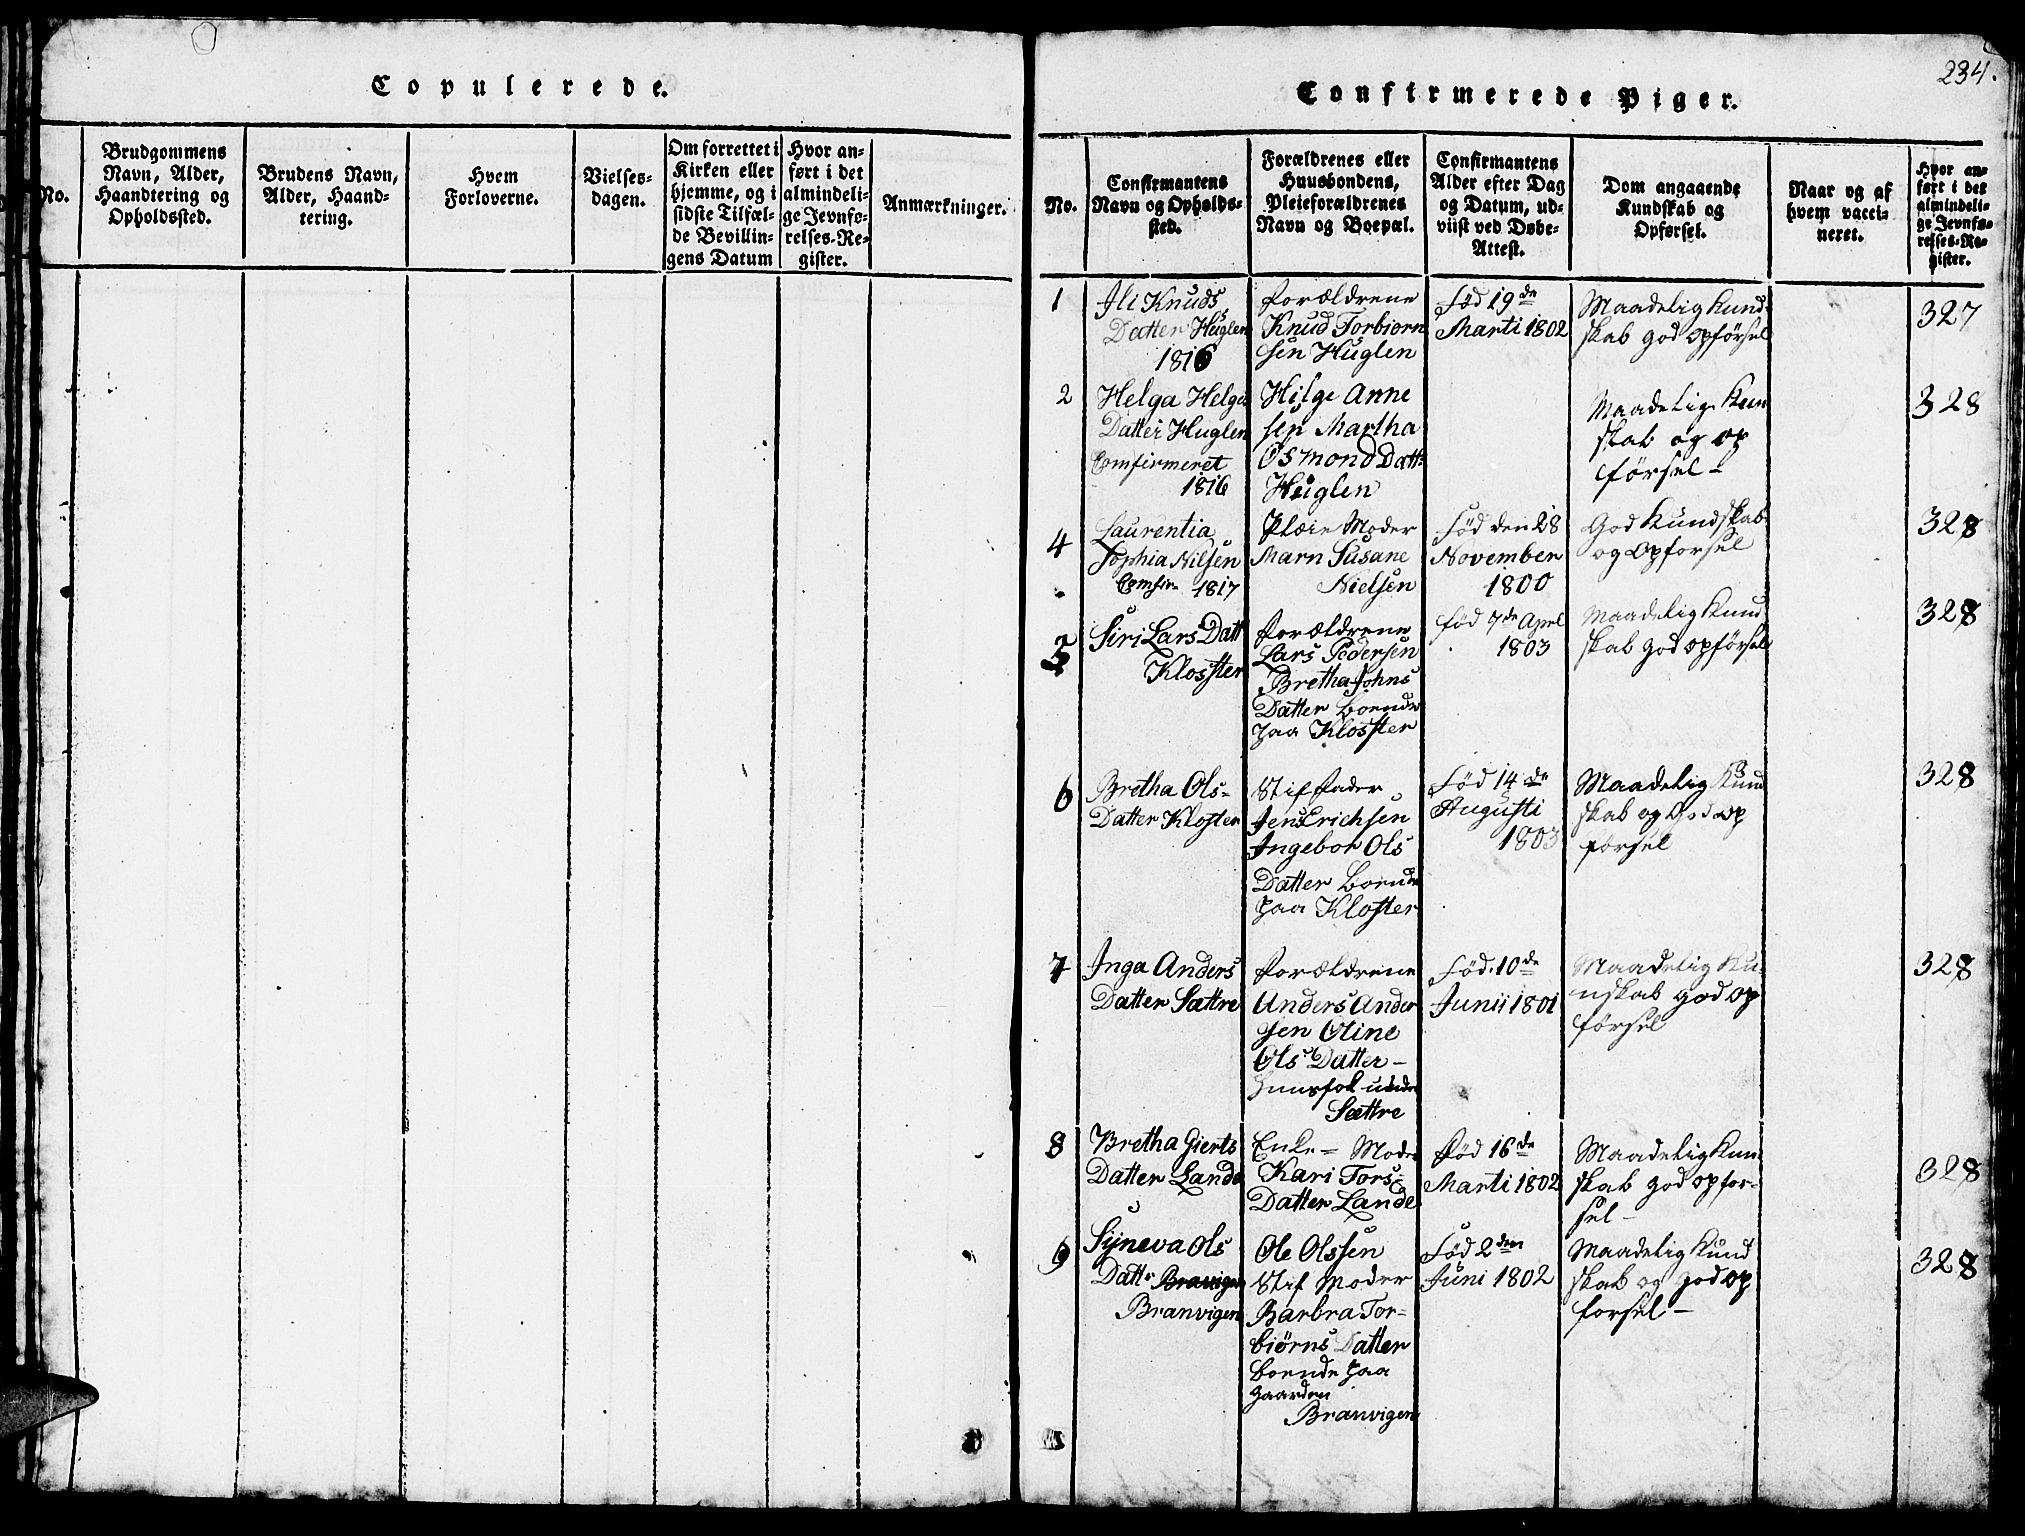 Copulerede.
No.
Brudgommens
Navn, Alder,
Haandtering og
Opholdssted.
Brudens Navn,
Alder, Haand-
tering.
Hvem
Forloverne.
Vielses-
dagen.
Om forrettet i
Kirken eller
hjemme, og i
sidste Tilfæl-
de Bevillin-
gens Datum
Hvor an-
ført i det
almindeli-
ge Jevnfø-
relses-Re-
gister.
Anmærkninger.
234.
Confirmerede Piger.
No.
Confirmantens
Navn og Opholds-
sted.
Forældrenes eller
Huusbondens,
Pleieforældrenes
Navn og Boepæl.
Confirmantens
Alder efter Dag
og Datum, ud-
viist ved Døbe-
Attest.
Dom angaaende
Kundskab og
Opførsel.
Naar og af
hvem vacci-
neret.
Hvor an-
ført i det
almindeli-
ge Jevnfø-
relses-Re-
gister.
1
Ili Knuds
Datter Huglen
1816
Forældrene
Knud Torbiorn
sen Huglen
Fød 19de
Marti 1802
Maadelig Kund
skab god opførsel
327
2
Helga Helge
Datter Huglen
Comfirmeret
1816
Hilge Anne
sen Martha
Osmond Datt
Huglen
Maadelig Kun
skab og op
førsel
328
4
Laurentia
Sophia Nilsen
Comfir 1817
Plæie Moder
Marn Susane
Nielsen
Fød den 28
November
1800
God Kundskab
og Opforsel
328
5
Siri Lars Datt
Klosster
Forældrene
Lars Pedersen
Bretha Johns
Datter boende
paa Klosster
fød 7de Aprl
1803
Maadelig Kund
skab god opførsel
328
6
Bretha Ols-
Datter Kloster
Stiffader
Jens Erichsen
Ingebor Ols
Datter boende
paa Kloster
Fød 14de
Augusti
1803
Maadelig Kund
skab og God op
førsel
328
7
Inga Anders
Datter Sættre
Forældrene
Anders Ander
sen Oline
Ols Datter-
Huusfol under
Sættre
Fød 10de
Junii 1801
Maadelig Ku-
nskab god op
førsel
328
8
Bretha Gierts
Datter Lande
Enke= Moder
Kari Tors-
Datter Lande
Fød 16de
Marti 1802
Maadelig Kun
skab god opfor-
sel-
328
9
Syneva Ols
Datt Branvigen
Branvigen
Ole Olssen
Stif Moder
Barbra Tor-
biørns Datter
boende paa
gaarden
Branvigen
Fød 2den
Juni 1802
Maadelig Kund
skab og god op
forsel-
328